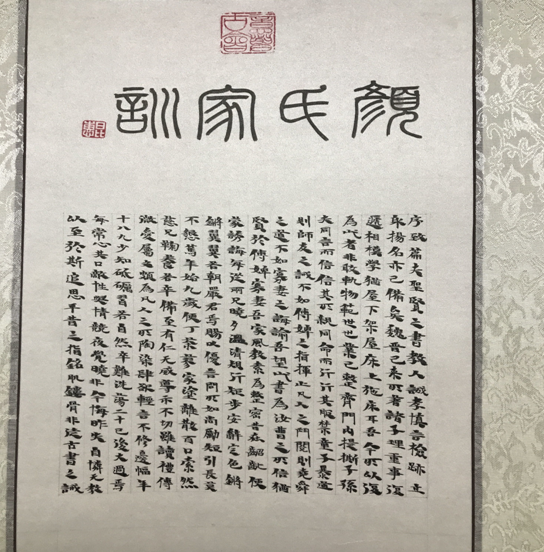 顏氏家訓
序致篇夫聖賢之書教人誠孝慎言檢跡立
身揚名亦已備矣魏晉已來所著諸子理重事復
遞相模學猶屋下架屋床上施床耳吾今所以復
為此者非敢軌物範世也業已整齊門內提撕子孫
夫同言而信信其所親同命而行行其所服禁童子暴謔
則師友之誡不如傅婢之指揮止凡人之鬥鬩則堯舜
之道不如寡妻之誨諭吾望此書為汝曹之所信猶
賢於傅婢寡妻吾家風教素為整密昔在齠齔便
蒙誘誨每從兩兄曉夕溫凊規行矩步安辭定色鏘
鏘翼翼若朝嚴君焉賜以優言問所好尚勵短引長莫
不懇篤年始九歲便丁荼蓼家塗離散百口索然
慈兄鞠養苦辛備至有仁無威導示不切雖讀禮傳
微愛屬文頗為凡人之所陶染肆欲輕言不修邊幅年
十八九少知砥礪習若自然卒難洗蕩二十已後大過焉
每常心共口敵性與情競夜覺曉非今悔昨失自憐無教
以至於斯追思平昔之指銘肌鏤骨非徒古書之誡